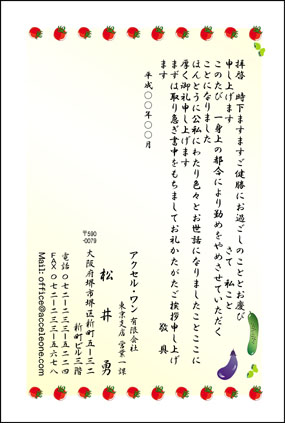 拝啓　時下ますますご健勝にお過ごしのこととお慶び
申し上げます
さて　私こと
このたび　一身上の都合により勤めをやめさせていただく
ことになりました
ほんとうに公私にわたり色々とお世話になりましたことここに
厚く御礼申し上げます
まずは取り急ぎ書中をもちましてお礼かたがたご挨拶申し上げ
ます
敬具
平成〇〇年〇〇月
アクセル・ワン有限会社
東京支店 営業一課
松井　勇
〒590
-0079
大阪府堺市堺区新町五ー三二
新町ビル三階
電話〇七二ー二三三ー五二二四
FAX〇七二ー二三三ー五六七八
Mail: office@acceleone.com